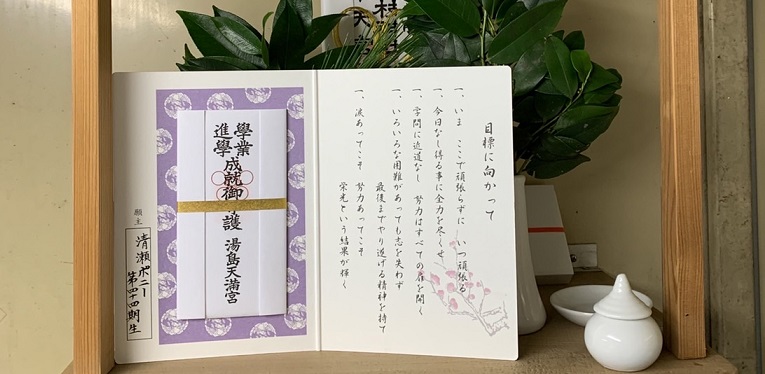 目標に向かって
一、いま ここで頑張らずに いつ頑張る
一、今日なし得る事に全力を尽くせ
一、学問に近道なし 努力はすべての扉を開く
一、いろいろな困難があっても志を失わず
最後までやり遂げる精神を持て
一、涙あってこそ 努力あってこそ
栄光という結果が輝く
學業
進學
成就御守護 湯島天満宮
願主
清瀬ポニー
第四十四期生